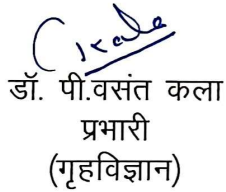 डॉ. पी.वसंत कला
प्रभारी
(गृहविज्ञान)